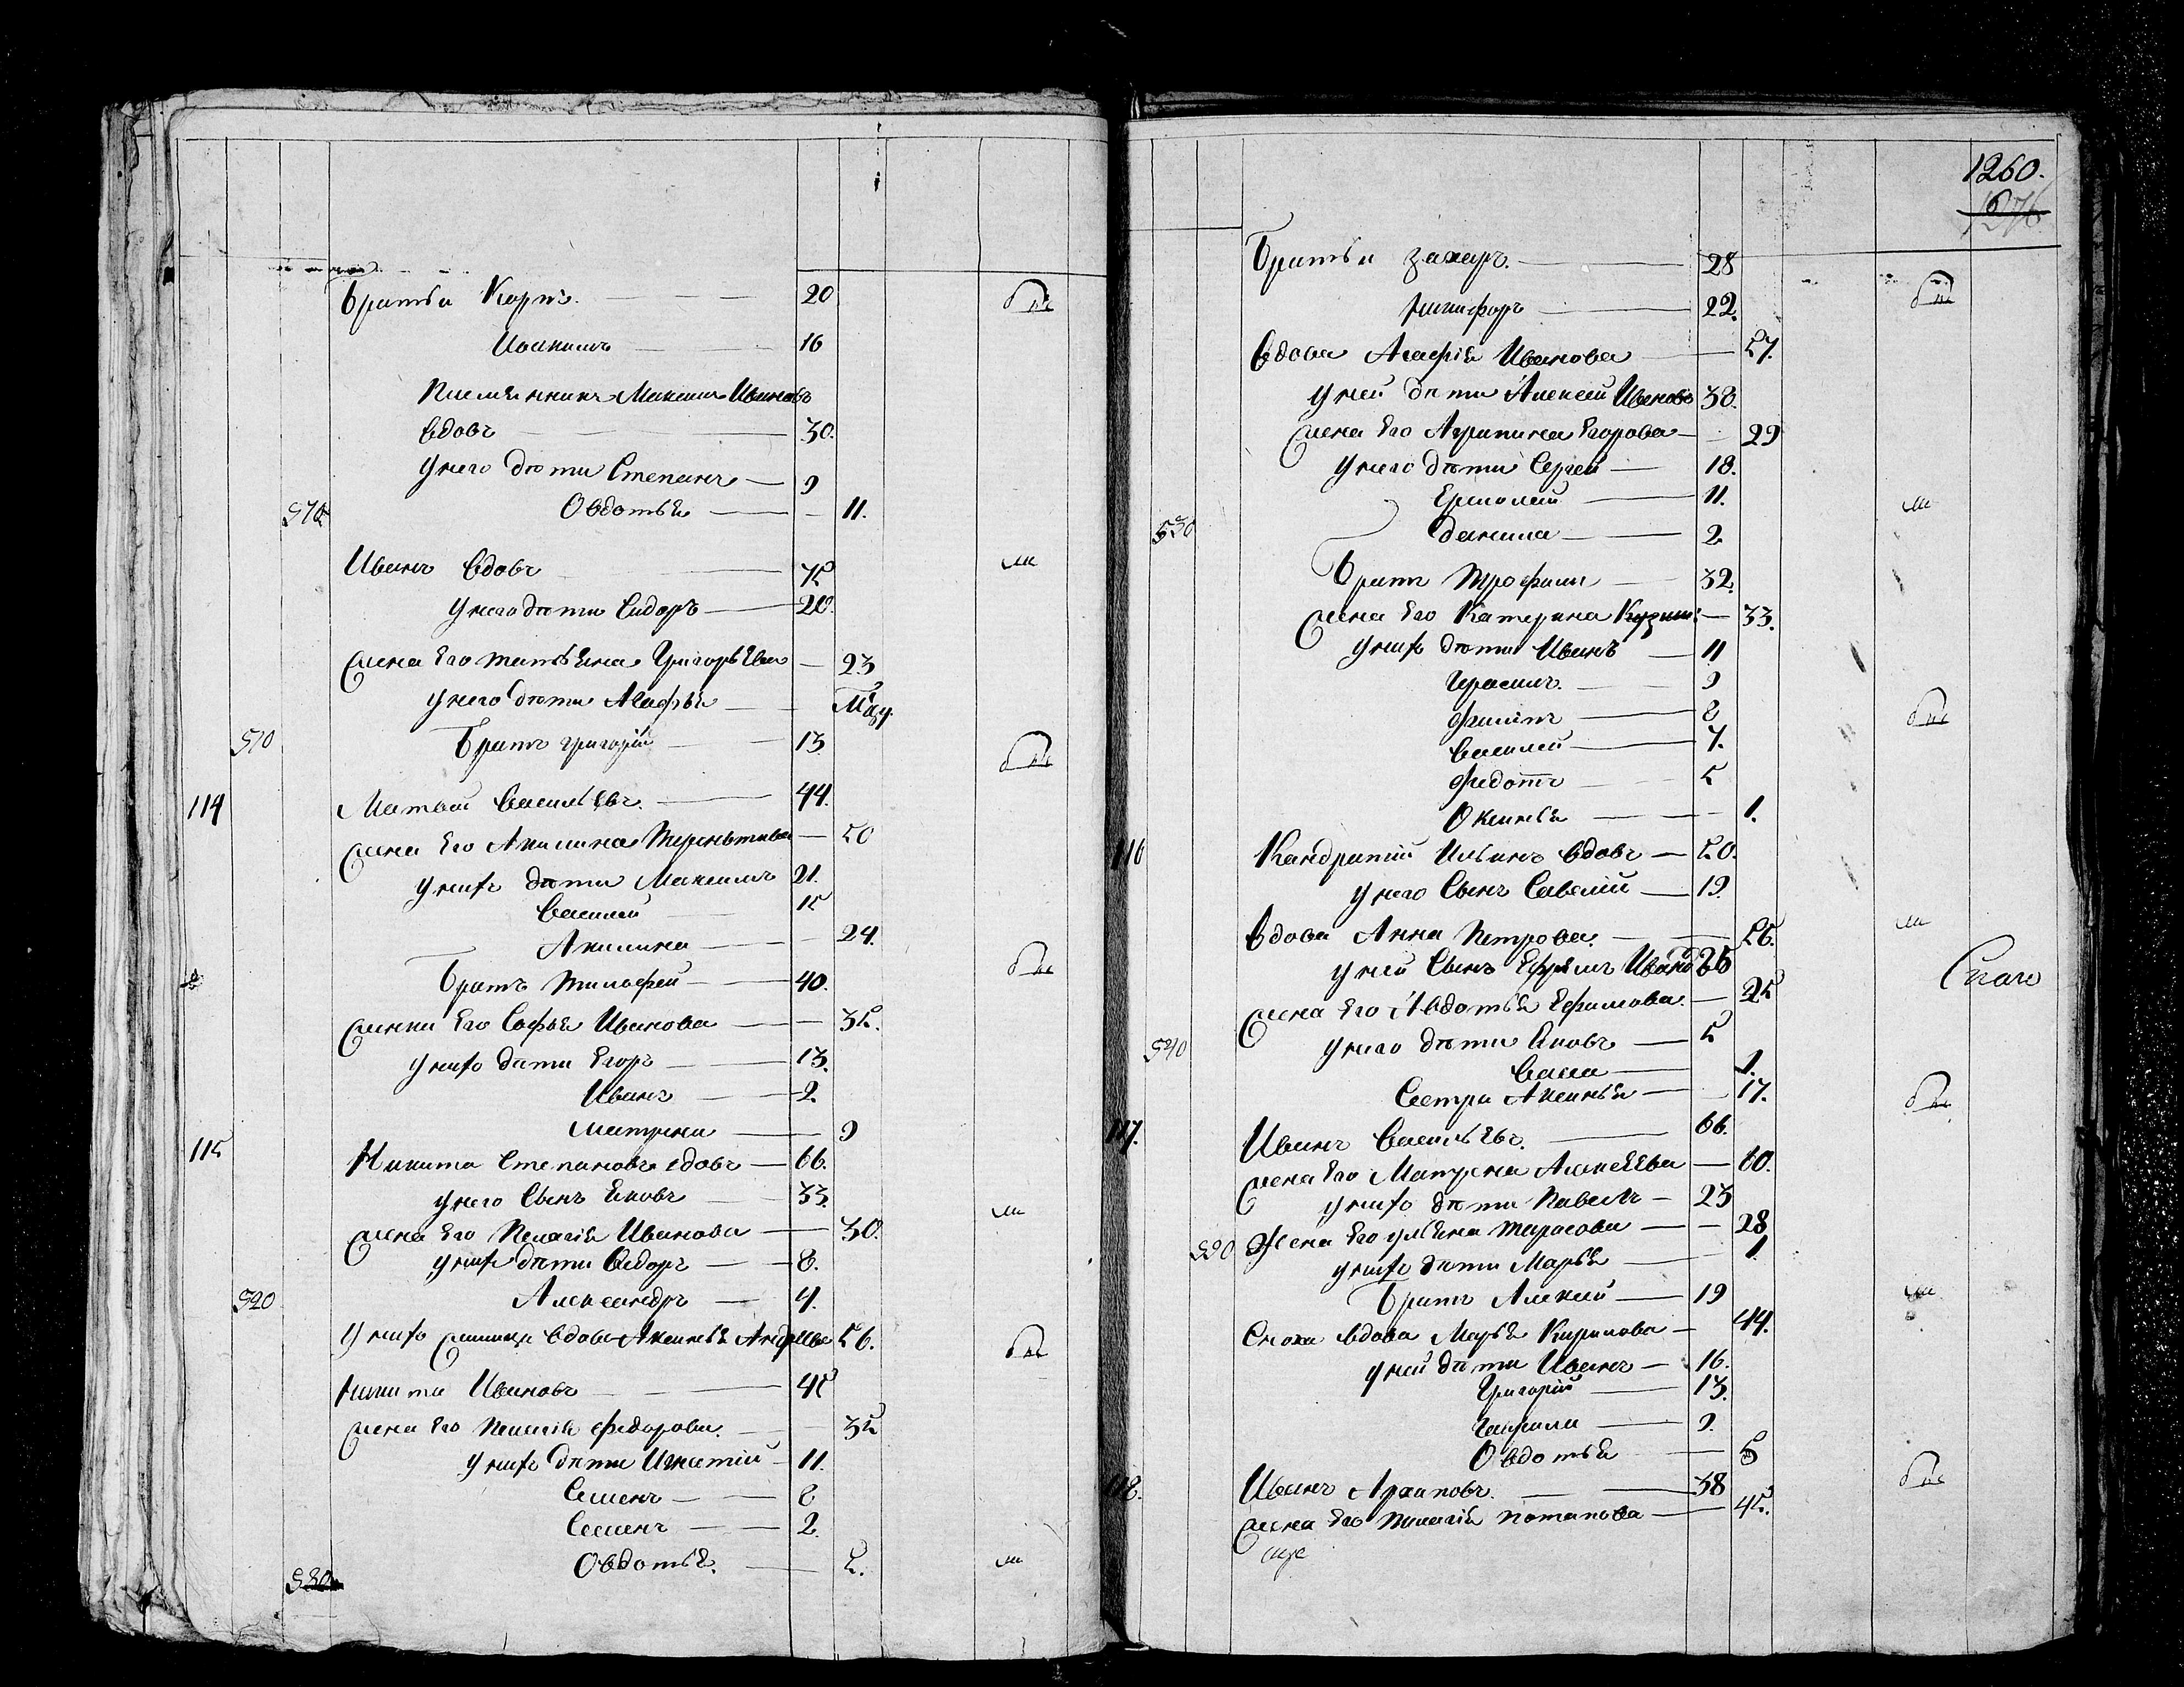 братья Карпъ 20
Иоакимъ 16
племянникъ Максимъ Ивановъ
вдовъ 30.
у него дѣти Степанъ 9
570 Овдотья 11.
Иванъ вдовъ 75
у него дѣти Сидоръ 20.
жена его татьяна Григорьева 23
у него дѣти Агафья
510 братъ григорій 13
114 Матвей Васильевъ. 44.
жена его Акилина Терентьева 50
у нихъ дѣти Максимъ 21.
Василей 15
Акилина 24.
братъ Тимофей 40.
жена его Софья Иванова 35.
у нихъ дѣти Егоръ 13.
Иванъ 2.
Матрена 9
115 Никита Степановъ вдовъ 66.
у него сынъ Яковъ 33.
жена его Пелагія Иванова 30.
у нихъ дѣти Федоръ 8.
520 Александръ 4.
у нихъ вдова Аксинья Андреева 56.
Никита Ивановъ 45
жена его Пелагія федорова. 35
у нихъ дѣти Игнатій 11.
Семенъ 8
Семенъ 2.
Овдотья. 5.
580
1260.
братья Захаръ. 28
Никифоръ 22.
вдова Агафія Иванова 57.
у ней дѣти Алексей Ивановъ 38.
жена его Агрипина Егорова 29
у него дѣти Сергей 18.
Ермолай 11.
530 данила 2
братъ Трофимъ 32.
жена его Катерина Кузми: 33.
у нихъ дѣти Иванъ 11
Герасимъ. 9
филипъ 8
Василей 7.
федотъ 5
Оксинья 1.
116 Кандратій Ильинъ вдовъ 50.
у него сынъ Савелій 19
вдова Анна Петрова. 56.
у ней сынъ Ефремъ Ивано 26
жена его Авдотья Ефимова. 25
540 у него дѣти Яковъ 5
Васса 1.
Сестра Аксинья 17.
117. Иванъ Васильевъ. 66.
жена его Матрена Алексеева 60.
у нихъ дѣти Павелъ 23
590 Жена его ульяна тарасова 28
у нихъ дѣти Марья 1
братъ Алексей 19
Сноха вдова Марья Кирилова 44.
у ней дѣти Иванъ 16.
Григорій 13.
гаврила 9.
Овдотья 5
118. Иванъ Архиповъ. 38
жена его пелагія потапова 45.